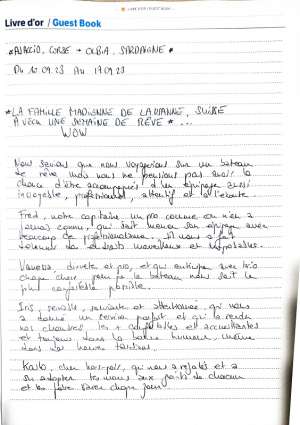 Livre d'or / Guest Book
*AJACCIO, CORSE → OLBIA, SARDAIGNE *
DU 10.09.23 AU 17.09.23
*LA FAMILLE DE LAUSANNE, SUISSE
A VÉCU UNE SEMAINE DE RÊVE* ...
WOW
Nous savions que nous voyagerions sur un bateau
de rêve mais nous ne pensions pas avoir la
chance d'être accompagnés d'un équipage aussi
incroyable, professionnel, attentif et à l'écoute
Fred, notre capitaine un pro comme on n'en a
jamais connu, qui sait mener son équipage avec
beaucoup de professionnalisme. Il nous a fait
découvrir des endroits merveilleux et
Vanessa, directe et pro, et qui entretient avec brio
chaque pour que le bateau nous soit le
plus confortable possible.
Iris, sensible, souriante et attentionnée, qui nous
a donné un service parfait et qui a rendu
nos chambres les + confortables et accueillantes
et toujours dans la bonne humeur, même
dans les heures tardives.
cher, qui nous a régalés et a
su adapter les menus aux goûts de chacun
et les faire varier chaque jour